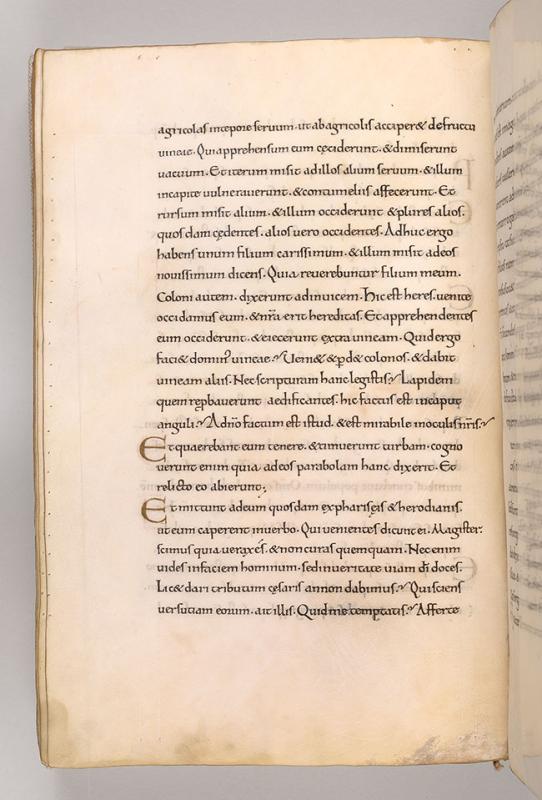 agricolas intepore seruum. ut ab agricolis acciper& defructu
uineae. Qui apprehensum eum cęciderunt. & dimiserunt
uacuum. Et iterum misit adillos alium seruum. & illum
incapite uulnerauerunt. & contumeliis affecerunt. Et
rursum misit alium. & illum occiderunt & plures alios.
quosdam cędentes. alios uero occidentes. Adhuc ergo
habens unum filium carissimum. & illum misit adeos
nouissimum dicens. Quia reuerebuntur filium meum.
Coloni autem. dixerunt adinuicem. Hic est heres. uenite
occidamus eum. & nr̃a erit hereditas. Et apprehendentes
eum occiderunt. & eiecerunt extra uineam. Quid ergo
faci& domin' uineae. Ueni& & p̱d& colonos. & dabit
uineam aliis. Nec scripturam hanc legistis. Lapidem
quem rep̱bauerunt aedificantes. hic factus est incaput
anguli. Adño factum est istud. & est mirabile inoculis nr̃is.
Et quaerebant eum tenere. & timuerunt turbam. cogno
uerunt enim quia adeos parabolam hanc dixerit. Et
relicto eo abierunt;
Et mittunt adeum quosdam expharisęis & herodianis.
ut eum caperent inuerbo. Qui uenientes dicunt ei. Magister.
scimus quia uerax és. & non curas quemquam. Nec enim
uides infaciem hominum. sed inueritate uiam dī doces.
Lic& dari tributum cęsaris an non dabimus. Qui sciens
uersutiam eorum. ait illis. Quid me temptatis. Afferte